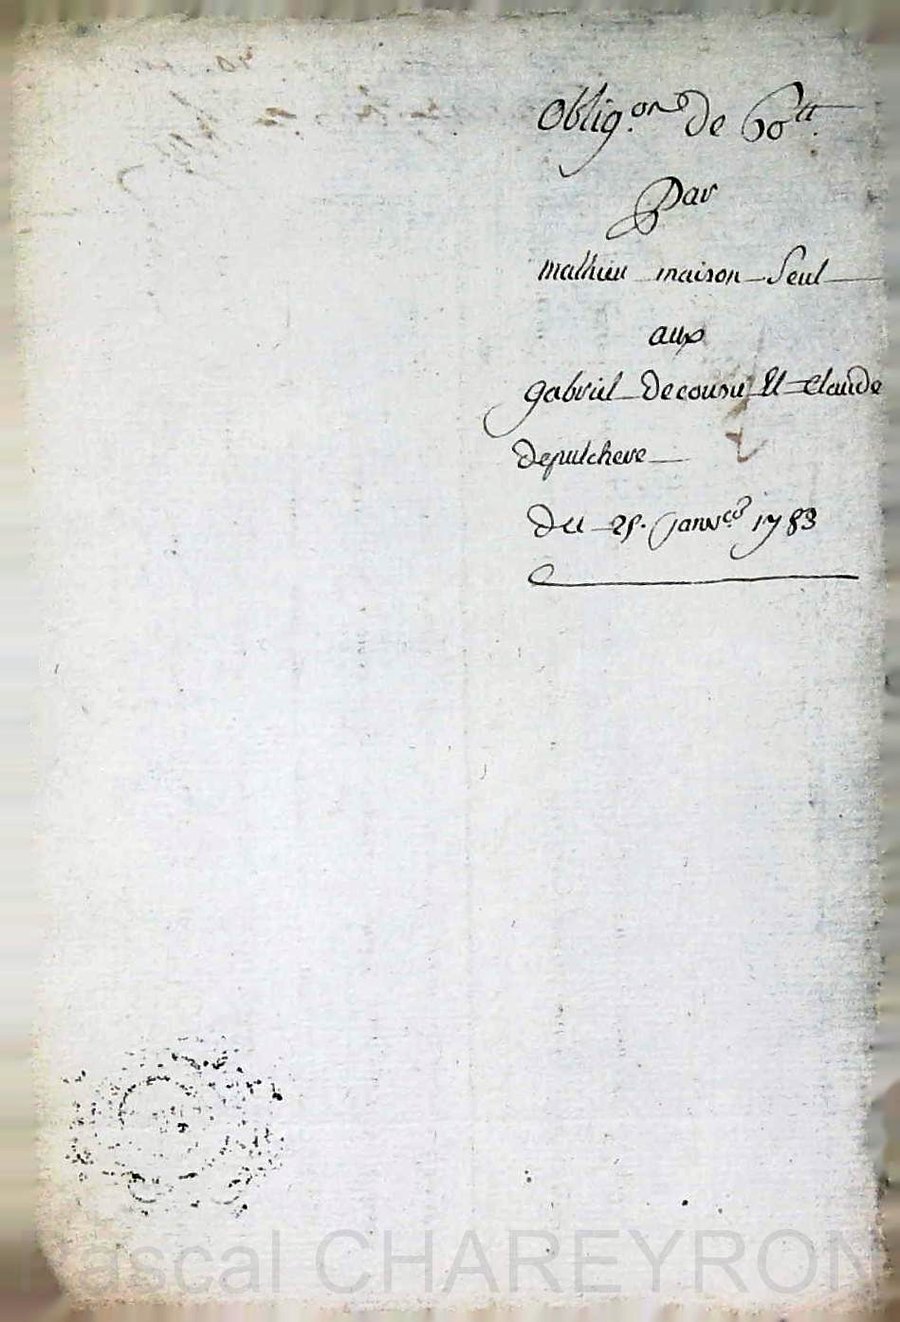 Oblig.on de 60 tt.
Par
mathieu maison Seul
aux
gabriel decousu et Claude
depulchere
Du 25. Janv.er 1783
Pascal CHAREYRON